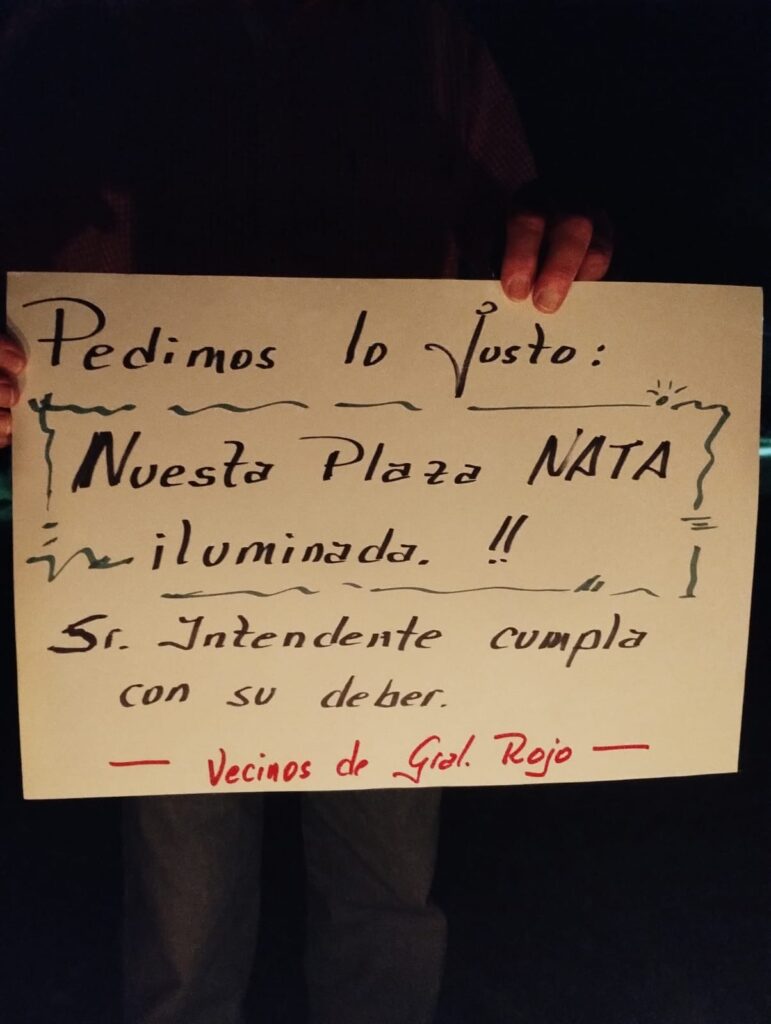 Pedimos lo justo:
Nuesta Plaza NATA
iluminada. !!
Sr. Intendente cumpla
con su deber.
— Vecinos de Gral. Rojo —